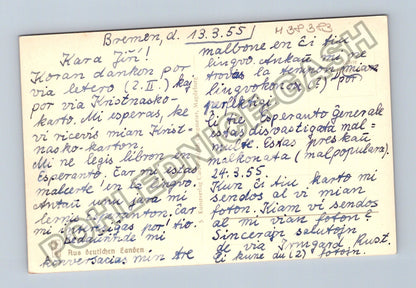 Bremen, d. 13.3.55
Kara Jiří!
Koran dankon por
via letero (2.II.) kaj
por via Kristnasko-
karto. Mi esperas, ke
vi ricevis mian Krist-
nasko-karton.
Mi ne legis libron en
Esperanto, ĉar mi estas
malbone en la lingvo.
Antaŭ unu jaro mi
lernis
ĉar
mi por tio
konversacias min tre
malbone en ĉi tiu
lingvo. Ankaŭ mi ne
trovas la tempon, mian
por
perfektigi.
Ĉi tie Esperanto ĝenerale
estas disvastigata mal-
multe. Estas preskaŭ
malkonata (malpopulara).
24.3.55.
Kun ĉi tiu karto mi
sendos al vi mian
foton. Kiam vi sendos
al mi vian foton?
Sincerajn salutojn
de via Irmgard Kust.
Ĉi kune du (2) fotojn.
Aus deutschen Landen
POHLEDNICE-CASH